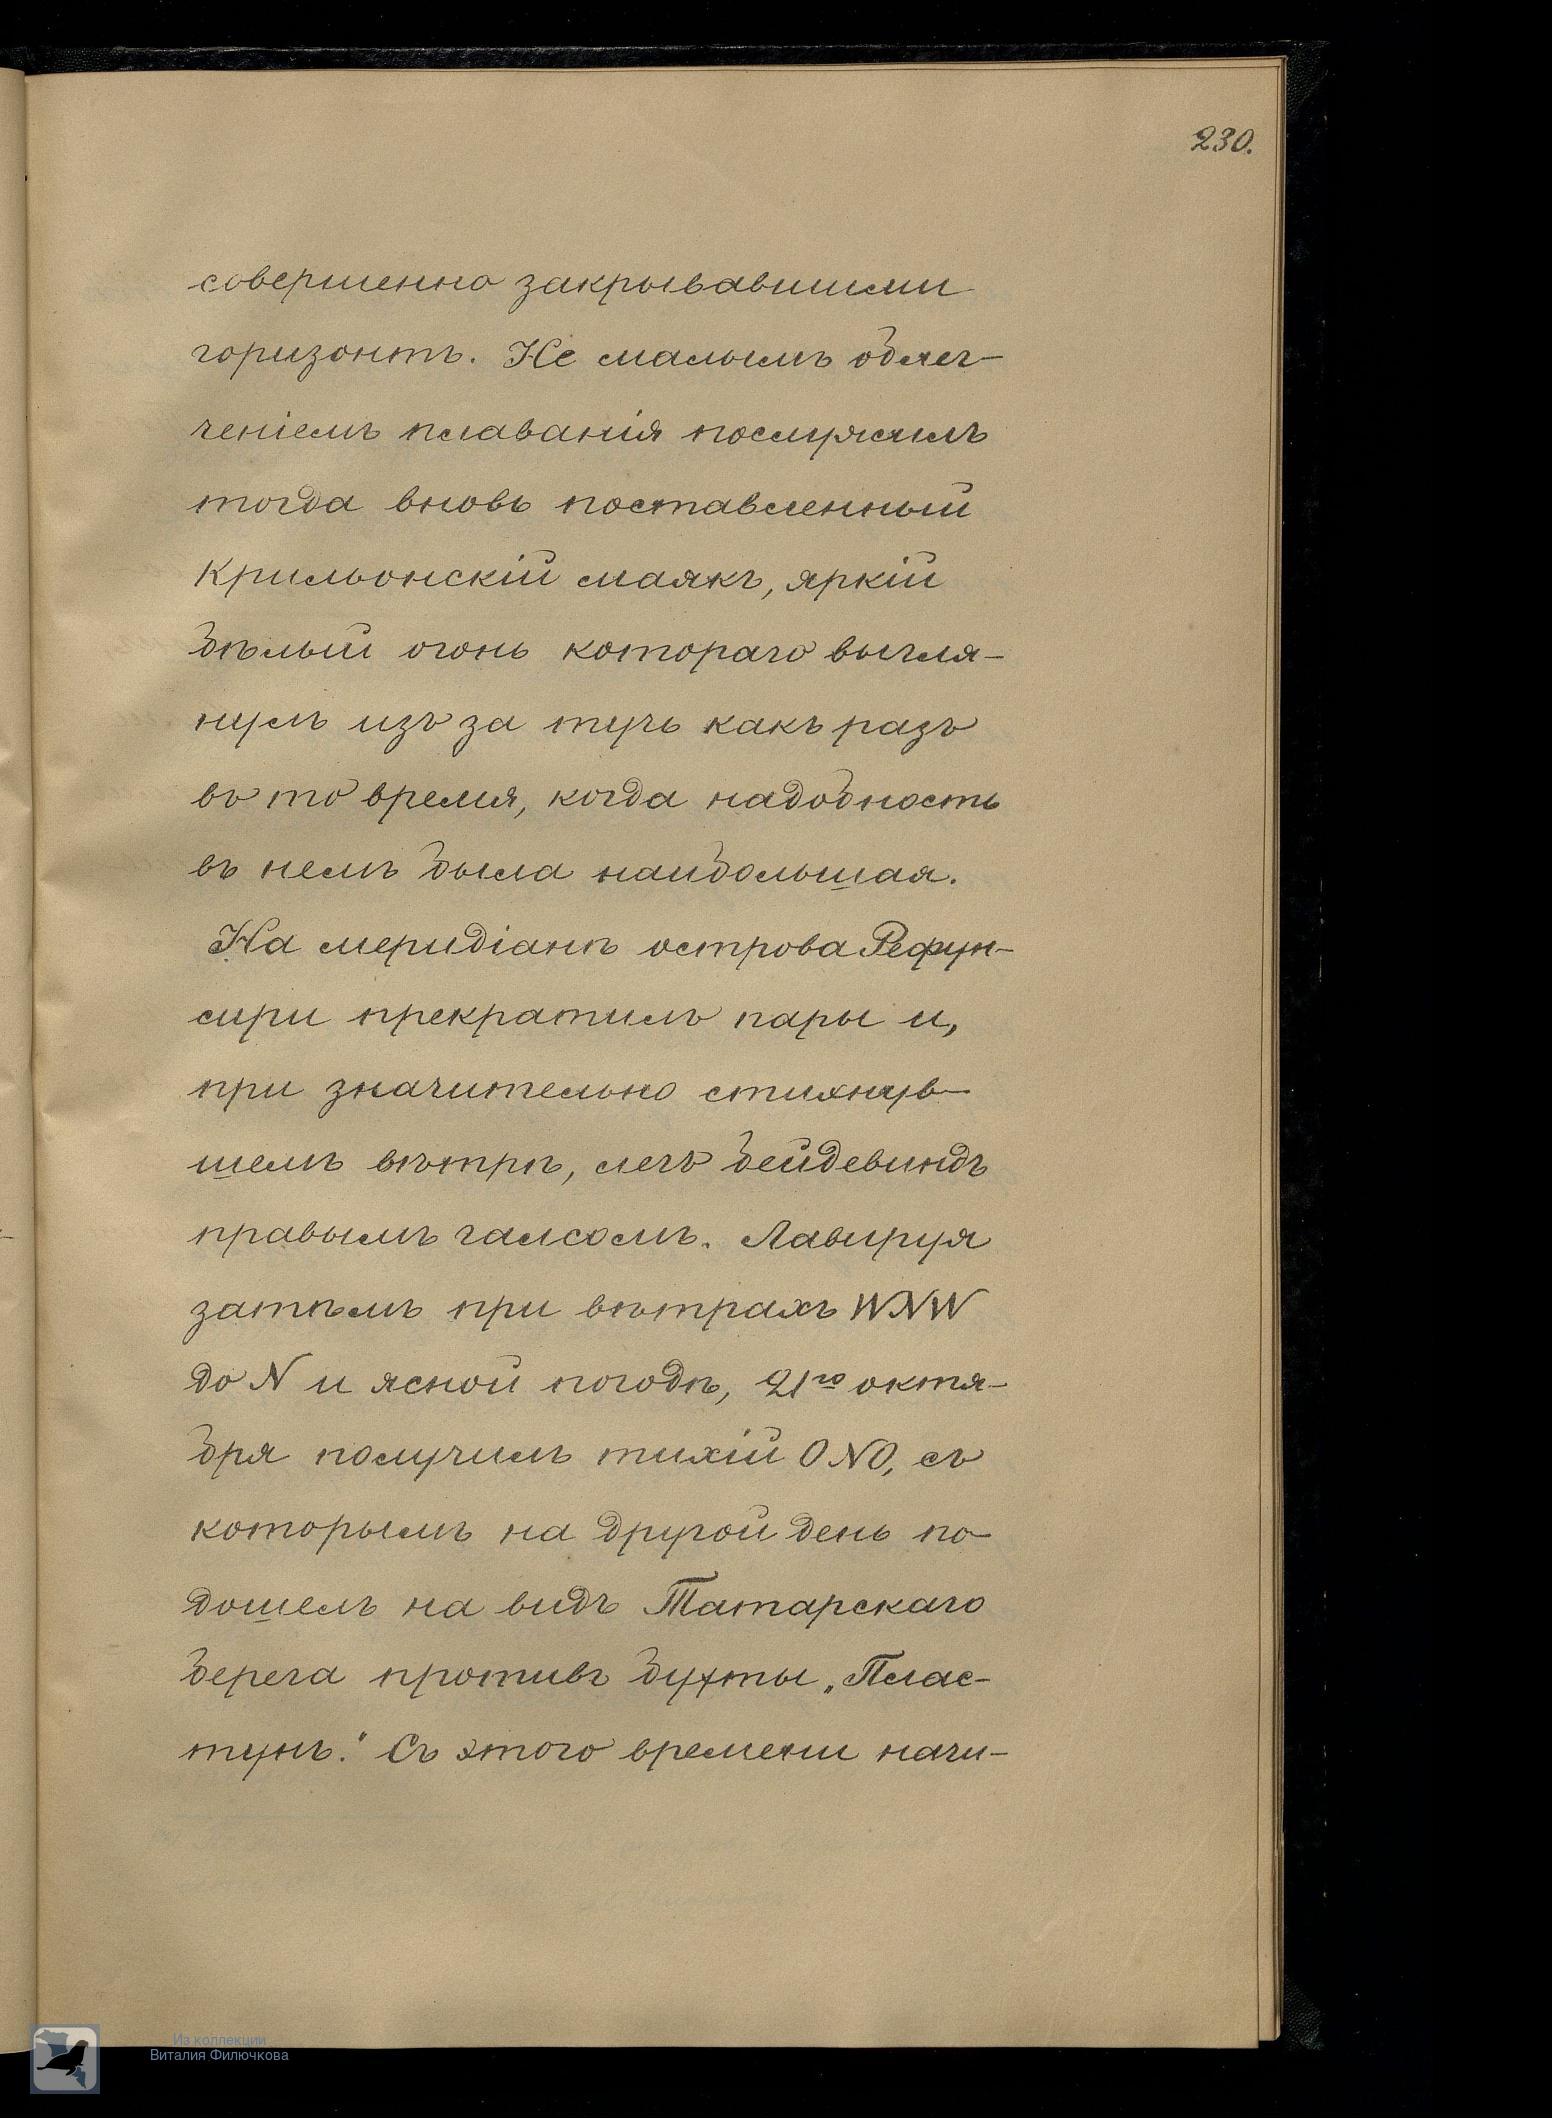 230.
совершенно закрывавшими
горизонтъ. Не малымъ облег-
ченіемъ плаванія послужилъ
тогда вновь поставленный
Крильонскій маякъ, яркій
бѣлый огонь котораго выгля-
нулъ изъ за тучъ какъ разъ
въ то время, когда надобность
въ немъ была наибольшая.
На меридіанѣ острова Рефун-
сири прекратилъ пары и,
при значительно стихнув-
шемъ вѣтрѣ, легъ бейдевиндъ
правымъ галсомъ. Лавируя
затѣмъ при вѣтрахъ WNW
до N и ясной погодѣ, 21го октя-
бря получилъ тихій ONO, съ
которымъ на другой день по-
дошелъ на видъ Татарскаго
берега противъ бухты „Плас-
тунъ." Съ этого времени начи-
Из коллекции
Виталия Филючкова